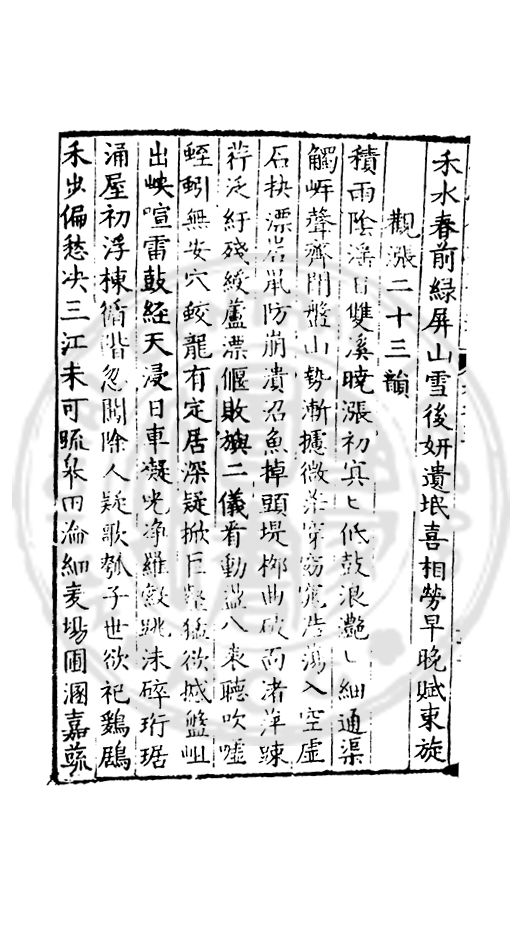 禾水春前緑屏山雪後妍遺垊喜相勞早晚賦東旋
觀漲二十三韻
積雨陰淫日雙溪曉漲初冥匕低鼓浪灔匕細通渠
觸岸聲齊閗盤山勢漸攄微茫穿窈窕浩蕩入空虛
石抉漂岩鼠防崩潰沼魚掉頭堤栁曲破面渚萍踈
荇泛紆殘綬蘆漂偃敗旟二儀看動盪八表聽吹嘘
蛭蚓無安穴蛟龍有定居深疑掀巨鰲猛欲撼盤岨
出峽喧雷鼓経天浸日車凝光净羅縠跳沫碎珩琚
涌屋初浮棟循階忽閙除人疑歌瓠子世欲祀鷄鶋
禾出偏愁决三江未可䟽皋田淪細麦塲圃溷嘉蔬